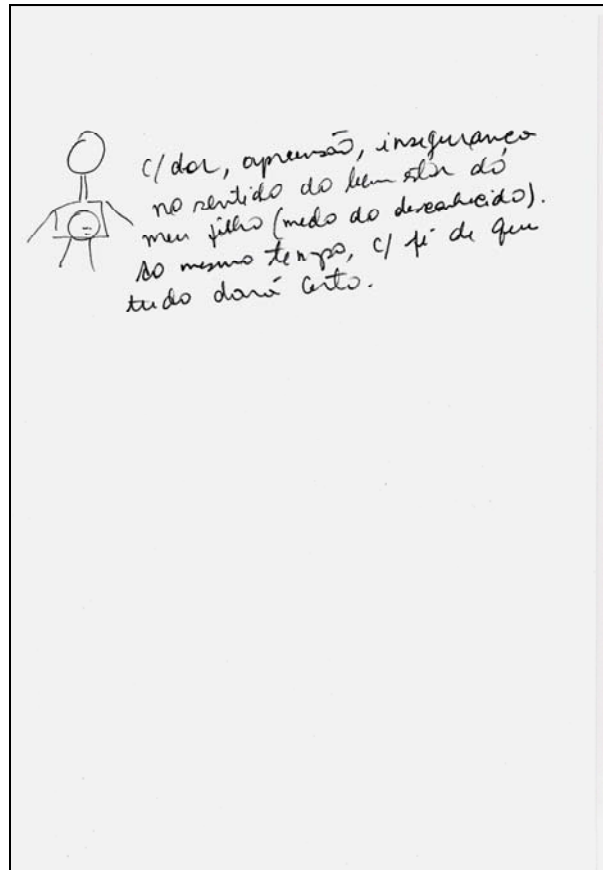 c/ dor, apreensão, insegurança
no sentido do bem estar do
meu filho (medo do desconhecido).
Ao mesmo tempo, c/ fé de que
tudo dará certo.